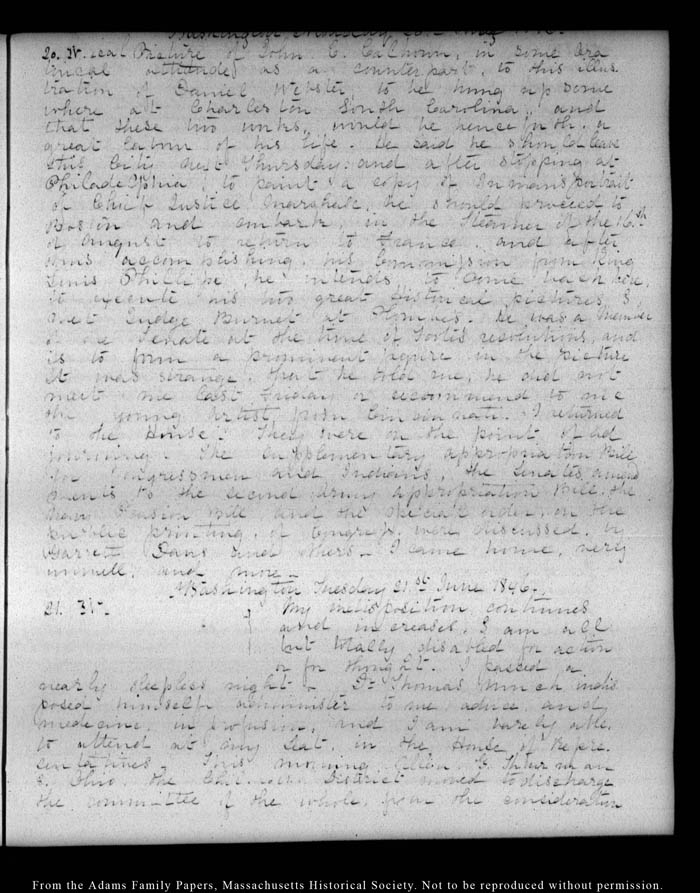 Washington, Monday 20.
20. IV. ical Picture of John C. Calhoun, in some ora
torical attitude, as a counterpart, to this illus
tration of Daniel Webster, to be hung up some
where at Charleston South Carolina, and
that these two works, would be henceforth, a
great labour of his life. He said he should leave
this City next Thursday: and after stopping at
Philadelphia, to paint a copy of Inman's portrait
of Chief Justice Marshall, he should proceed to
Boston and embark, in the Steamer of the 16.th
of August to return to France, and after
thus accomplishing his Commission from King
Louis Phillipe, he intends to come back here,
to execute his two great Historical pictures, I
met Judge Burnet at He was a Member
of the Senate at the time of resolutions, and
is to form a prominent figure in the picture
It was strange, that he told me, he did not
meet me last Friday or recommend to me
the young Artist from Cincinnati. I returned
to the House. They were on the point of ad
journing. The supplementary appropriation Bill
for Congressmen and Indians, the Senates amend
ments to the second Army appropriation Bill, the
Navy Pension Bill and the special order on the
public printing, of Congress, were discussed, by
Garrett Davis and others— I came home, very
unwell, and more—
Washington Tuesday 21.st 1846.
21. IV. My indisposition continues
and increases. I am all
but totally disabled for action
or for thought. I passed a
nearly sleepless night— Dr. Thomas much indis
posed himself administer to me advice, and
medicine, in profusion, and I am barely able,
to attend at my seat, in the House of Repre.
sentatives. This morning, Allen G. Thurman
of Ohio, the District moved to discharge
the committee of the whole, from the consideration
From the Adams Family Papers, Massachusetts Historical Society. Not to be reproduced without permission.